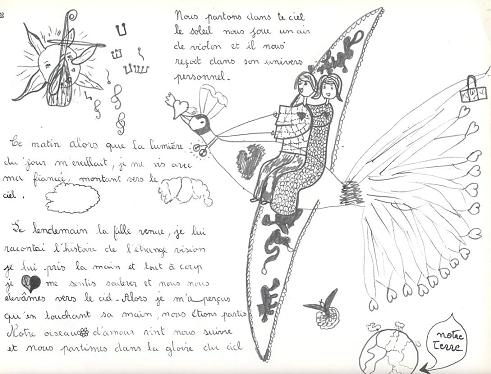 Nous partons dans le ciel
le soleil nous joue un air
de violon et il nous
reçoit dans son univers
personnel.
Ce matin alors que la lumière
du jour m'éveillait, je me vis avec
ma fiancée, montant vers le
ciel.
Le lendemain la fille venue, je lui
racontai l'histoire de l'étrange vision
je lui pris la main et tout à coup
je me sentis soulever et nous nous
élevâmes vers le ciel. Alors je m'aperçus
qu'en touchant sa main, nous étions partis
Notre oiseau d'amour vint nous suivre
et nous partîmes dans la gloire du ciel
notre
Terre